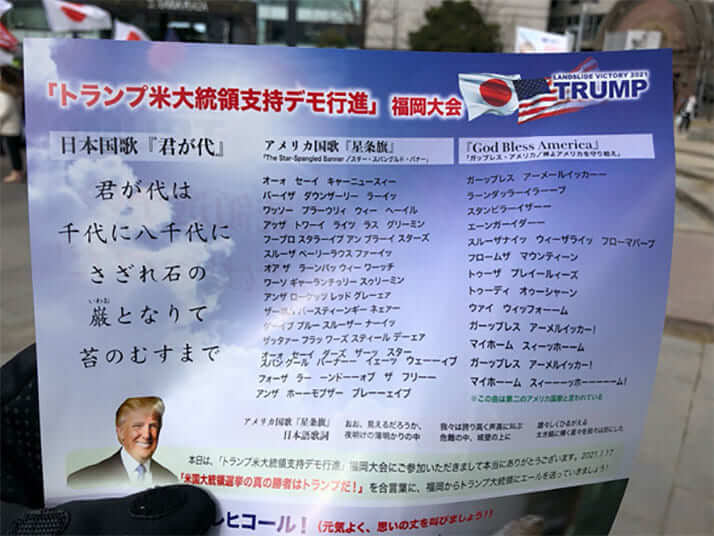 「トランプ米大統領支持デモ行進」 福岡大会
LANDSLIDE VICTORY 2021
TRUMP
日本国歌『君が代』
君が代は
千代に八千代に
さざれ石の
いわお
巌となりて
苔のむすまで
アメリカ国歌『星条旗』
「The Star-Spangled Banner /スター・スパングルド・バナー」
オーォ セーイ キャーニュースィー
バーイザ ダウンザーリー ラーイッ
ワッソー プラーウリィ ウィー ヘーイル
アッザ トワーイ ライツ ラス グリーミン
フーブロ スタラーイプ アン ブラーイ スターズ
スルーザ ペーリーラウス ファーイッ
オア ザ ラーンパッ ウィー ワーッチ
ワーソ ギャーランチィリー スゥリーミン
アンザ ローケッツ レッド グレーェア
バースティーンギー ネェアー
ブルー スルーザー ナーイッ
ザッタァー フラッ ワーズ スティール デーェア
オーォ セーイ ダーズ ザーッ スター
スパングール バーナー イェーッ ウェーーイブ
フォーザ ラー ーンドーーオブ ザ フリーー
アンザ ホーーモブザー ブレーーェイブ
『God Bless America』
「ガッブレス・アメリカ/神よアメリカを守り給え」
ガーッブレス アーメールイッカーー
ラーンダッラーイラーーブ
スタンビラーイザーー
エーンガーイダーー
スルーザナイッ ウィーザライッ フローマバーブ
フロームザ マウンティーン
トゥーザ プレイールィーズ
トゥーディ オゥーシャーン
ウァイ ウィッフォーーム
ガーッブレス アーメルイッカー!
マイホーム スィーッホーーム
ガーッブレス アーメルイッカー!
マイホーム スィーーーッホーーーーーム!
※この曲は第二のアメリカ国歌と言われている
アメリカ国歌『星条旗』
日本語歌詞
おお、見えるだろうか、
夜明けの薄明かりの中
我々は誇り高く声高に叫ぶ
危難の中、城壁の上に
雄々しくひるがえる
本日は、「トランプ米大統領支持デモ行進」福岡大会にご参加いただきまして本当にありがとうございます。2021.1.17
「米国大統領選挙の真の勝者はトランプだ!」を合言葉に、福岡からトランプ大統領にエールを送っていきましょう!
ヒコール! (元気よく、思いの丈を叫びましょう!!